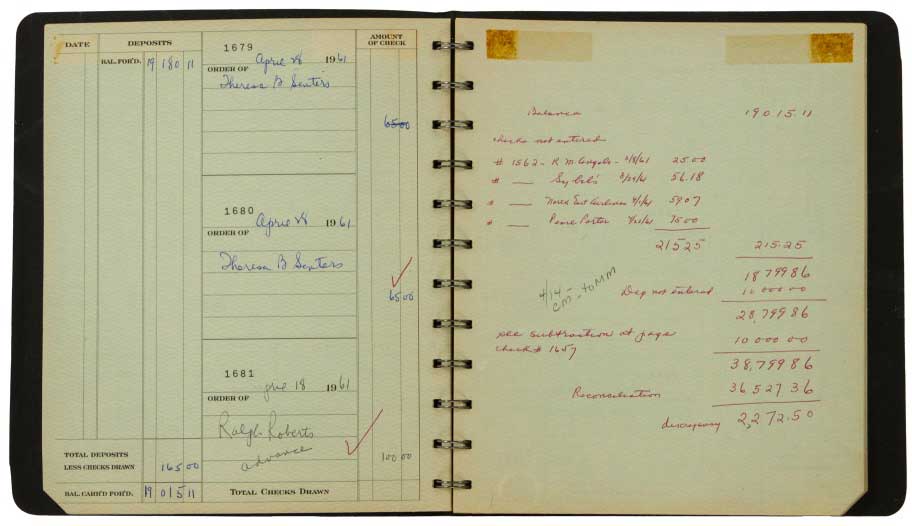 DATE DEPOSITS AMOUNT OF CHECK
BAL. FOR'D. 19 180 11
1679
April 28 1961
ORDER OF
Theresa B Senters
65 00
1680
April 28 1961
ORDER OF
Theresa B Senters
65 00
1681
18 1961
ORDER OF
Ralph Roberts
advance
100 00
TOTAL DEPOSITS
LESS CHECKS DRAWN 165 00
BAL. CARR'D FOR'D. 19 015 11
TOTAL CHECKS DRAWN
Balance 19015.11
checks not entered
# 1562 - R M 2/8/61 25.00
# — 56.18
# — 4/1/61 59.07
# — Porter 75.00
215 25 215.25
18 799 86
4/14 - CM - to MM
Dep not entered 10 000 00
28,799 86
see subtraction at page
check # 1657
10 000 00
38,799 86
Reconciliation 36 527 36
discrepancy 2,272.50